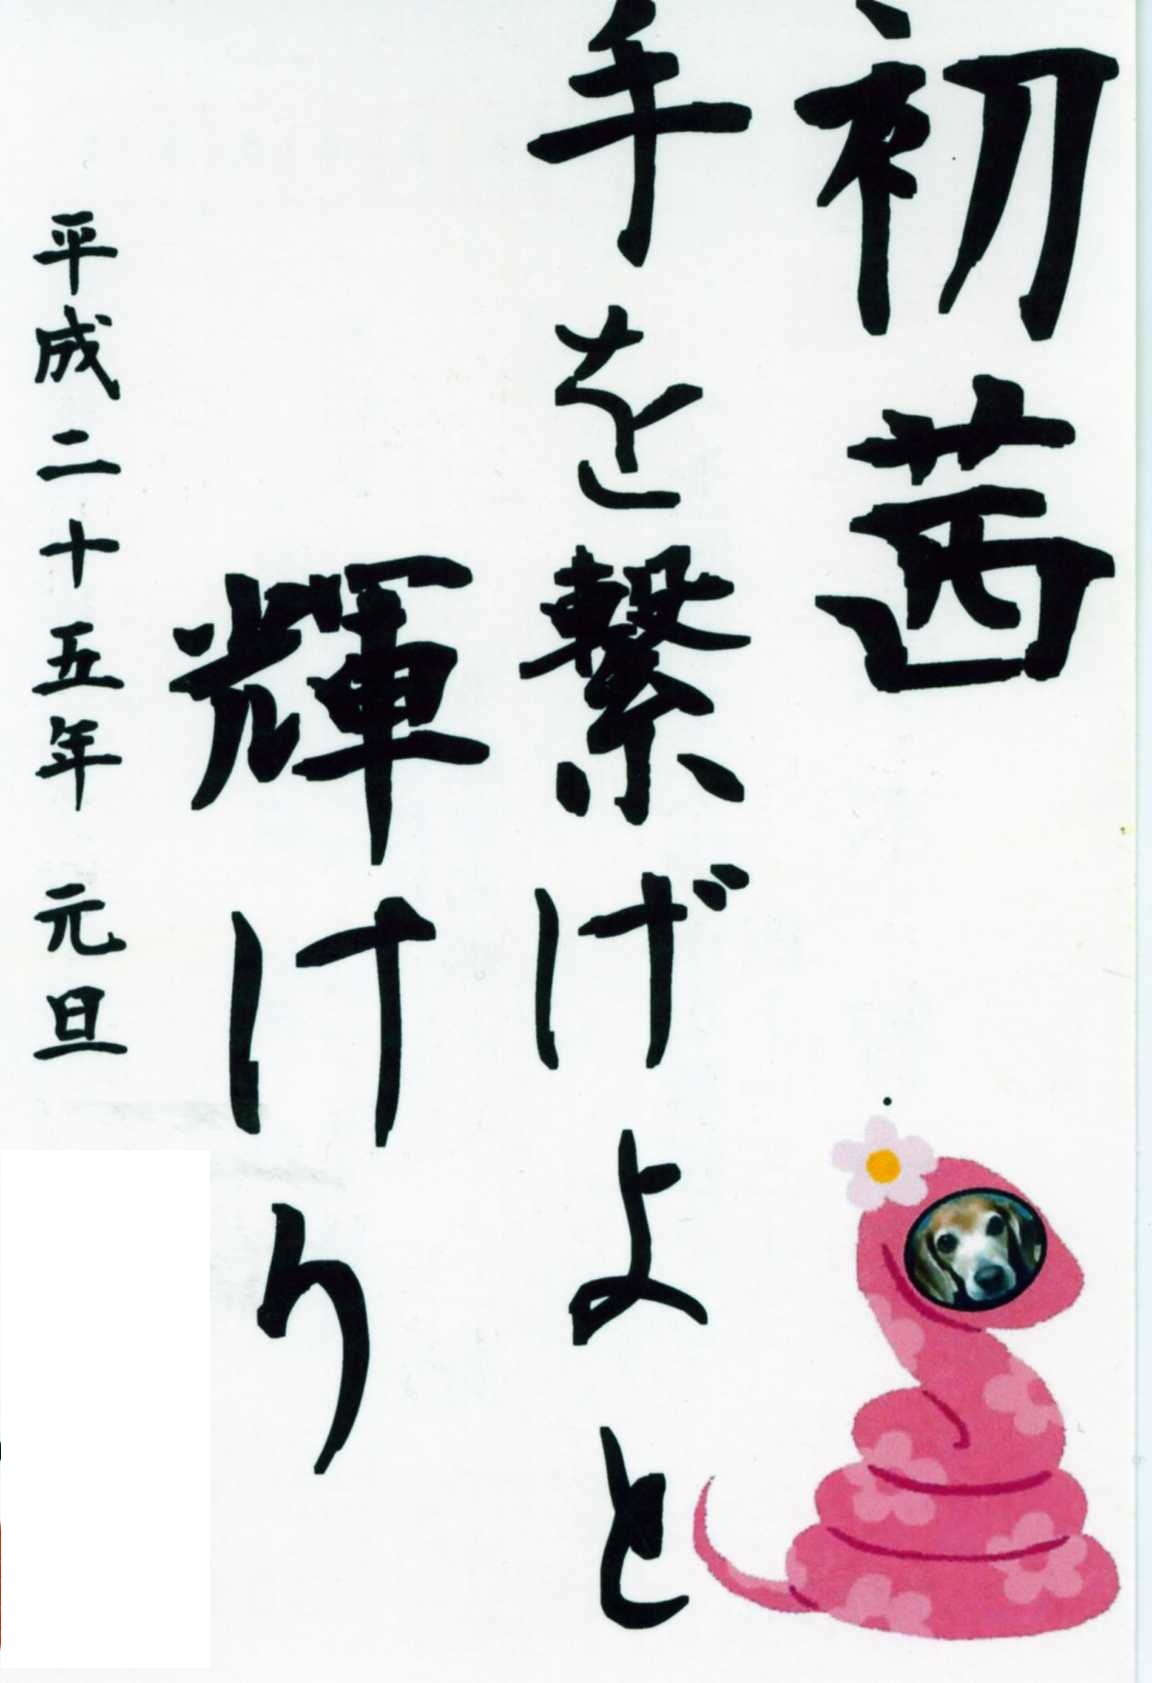 初茜
手を繋げよと
輝けり
平成二十五年 元旦